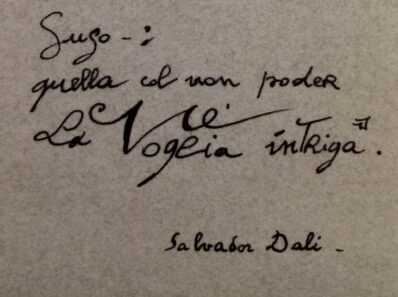 Suso -:
quella col non poder
La Voglia intriga.
Salvador Dali -